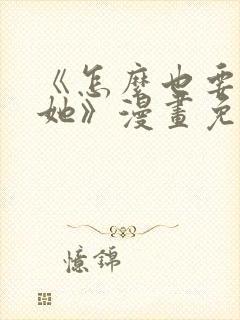 《怎麼也要
她》漫畫免
憶錦